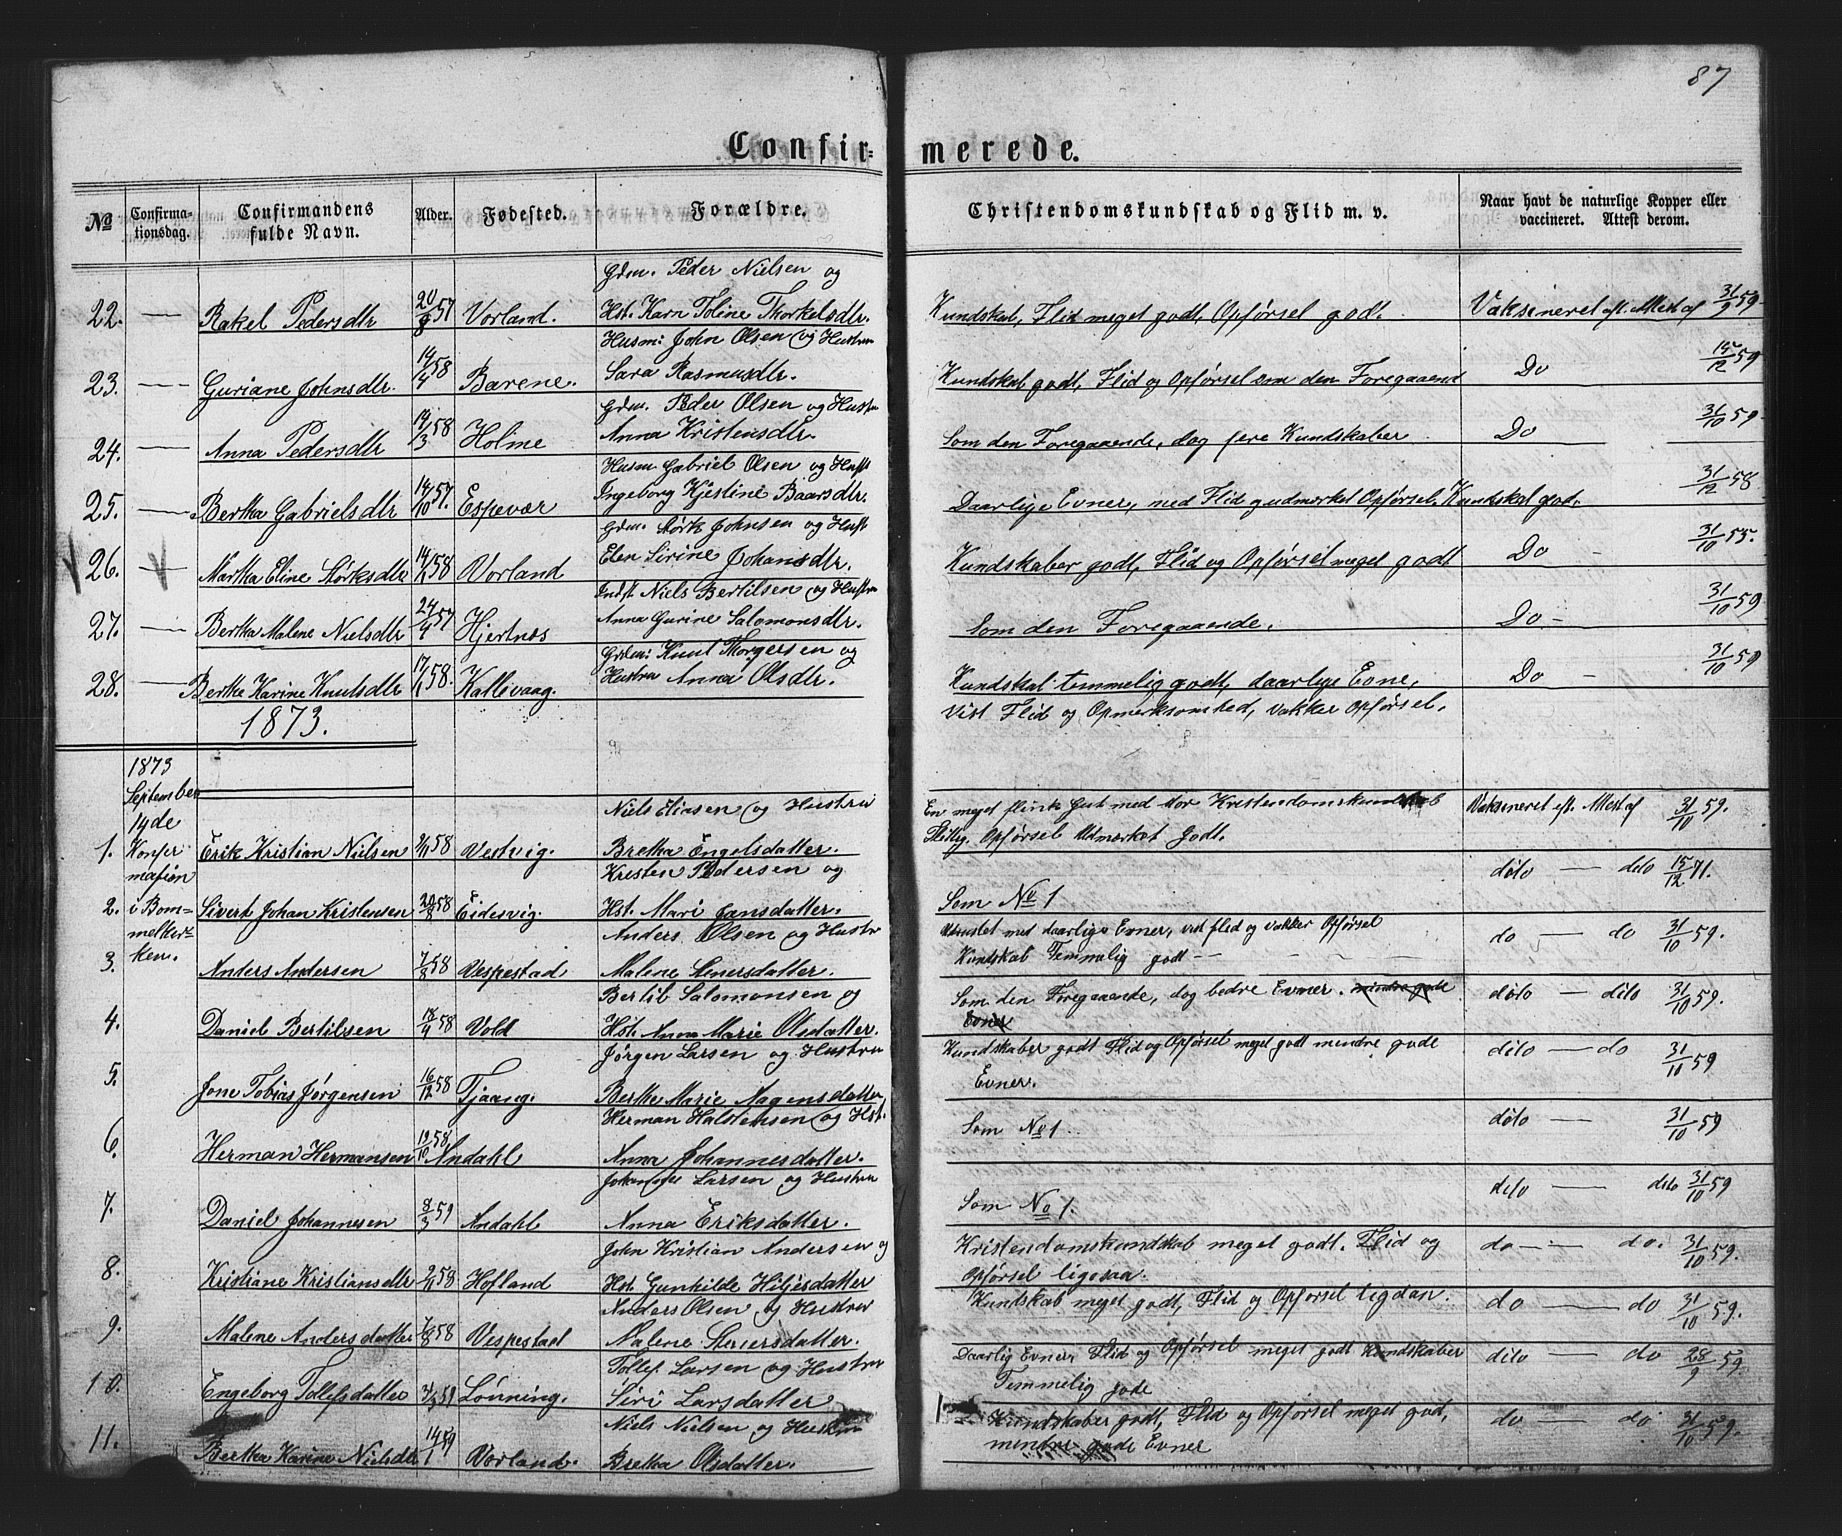 87
Confir-
merede.
No
Confirma-
tionsdag.
Confirmandens
fulde Navn.
Alder.
Fødested.
Forældre.
Christendomskundskab og Flid m. v.
Naar havt de naturlige Kopper eller
vaccineret. Attest derom.
Gdm. Peder Nielsen og
22. — Rakel Pedersdtr 20/8 57 Vorland. Hst. Karn Toline Thorkelsdtr. Kundskab, Flid meget godt, Opførsel godt. Vaksineret eft. Attest af 31/9 59.
Husm: John Olsen og Hustru
23. — Guriane Johnsdtr. 14/4 58 Barene. Sara Rasmusdtr. Kundskab godt, Flid og Opførsel som den Foregaaend Do 15/12 59
Gdm. Peder Olsen og Hustru
24. — Anna Pedersdtr 14/3 58 Holme Anna Kristensdtr. Som den Foregaaende, dog fere Kundskaber Do 31/10 59.
Husm Gabriel Olsen og Hust
25. — Bertha Gabrielsdtr 14/10 57. Espevær Ingeborg Kjestine Baarsdtr. Daarlige Evner, med Flid g udmærket Opførsel. Kundskab god. 31/12 58
Gdm. Størk Johnsen og Hust
26. Martha Eline Størksdtr 58 Vorland Elen Sirine Johansdtr. Kundskaber godt, Flid og Opførsel meget godt Do - 31/10 55.
Indst Niels Bertilsen og Hustru
27. — Bertha Malene Nielsdtr 24/4 57 Hjertnæs Anna Gurine Salomonsdtr. Som den Foregaaende. Do - 31/10 59
Grdm: Knut Thorgersen og
28. — Berthe Karine Knutsdtr 58. Kallivaag. Hustru Anna Olsdtr. Kundskab temmelig godt, daarlige Evne, Do - 31/10 59
Vist Flid og Opmerksomhed, vakker Opførsel.
1873.
1873
September
14de
Konfir
mation
i Bom-
melkir-
ken.
Niels Eliasen og Hustru En meget flink Gut med stor Kristendomskundskab Vaksineret eft. Attest af 31/10 59.
1. Erik Kristian Nielsen 58 Vestvig. Bretha Engelsdatter. Flittig. Opførsel Udmærket godt.
Kristen Pedersen og dito — dito 15/12 71.
2. Sivert Johan Kristensen 58 Eidesvig. Hst. Mari Jansdatter. Som No 1
Anders Olsen og Hustru Udrustet med daarlige Evner, vist flid og vakker Opførsel do — do 31/10 59.
3. Anders Andersen 7/8 58 Vespestad Malene Stenersdatter. Kundskab Temmelig godt -
Bertil Salomonsen og Som den Foregaaende, dog bedre Evner. mindre gode dito — dito 31/10 59.
4. Daniel Bertilsen 18/4 58 Vold Hst. Anna Marie Olsdatter. Evner
Jørgen Larsen og Hustru Kundskaber godt Flid og Opførsel meget godt mindre gode dito — do 31/10 59
5. Jone Tobias Jørgensen 16/12 58 Tjaang. Berthe Marie Aagensdatter Evner.
Herman Halstensen og Hst. dito — 31/10 59
6. Herman Hermansen 19/10 58. Andahl Anna Johannesdatter. Som No 1.
Johannes Larsen og Hustru dito — dito 31/10 59
7. Daniel Johannesen 8/3 59 Andahl Anna Eriksdatter. Som No 1.
John Kristian Andersen og Kristendomskundskab meget godt. Flid og do - do. 31/10 59.
8. Kristiane Kristiansdtr 58 Hofland Hst. Gunhilde Hiljesdatter Opførsel ligesaa.
Anders Olsen og Hustru Kundskab meget godt, Flid og Opførsel ligdan. do — do 31/10 59.
9. Malene Andersdatter 7/8 58 Vespestad Malene Stenersdatter.
Tollef Larsen og Hustru Daarlig Evner, Flid og Opførsel meget godt Kundskaber dito — do 28/9 59.
10. Engeborg Tollefsdatter 59 Lønning. Siri Larsdatter Temmelig gode
Niels Nielsen og Hustru Kundskaber godt, Flid og Opførsel meget god, do do 31/10 59.
11. Bertha Karine Nielsdtr 14/1 59 Vorland. Bretha Olsdatter. mindre gode Evner